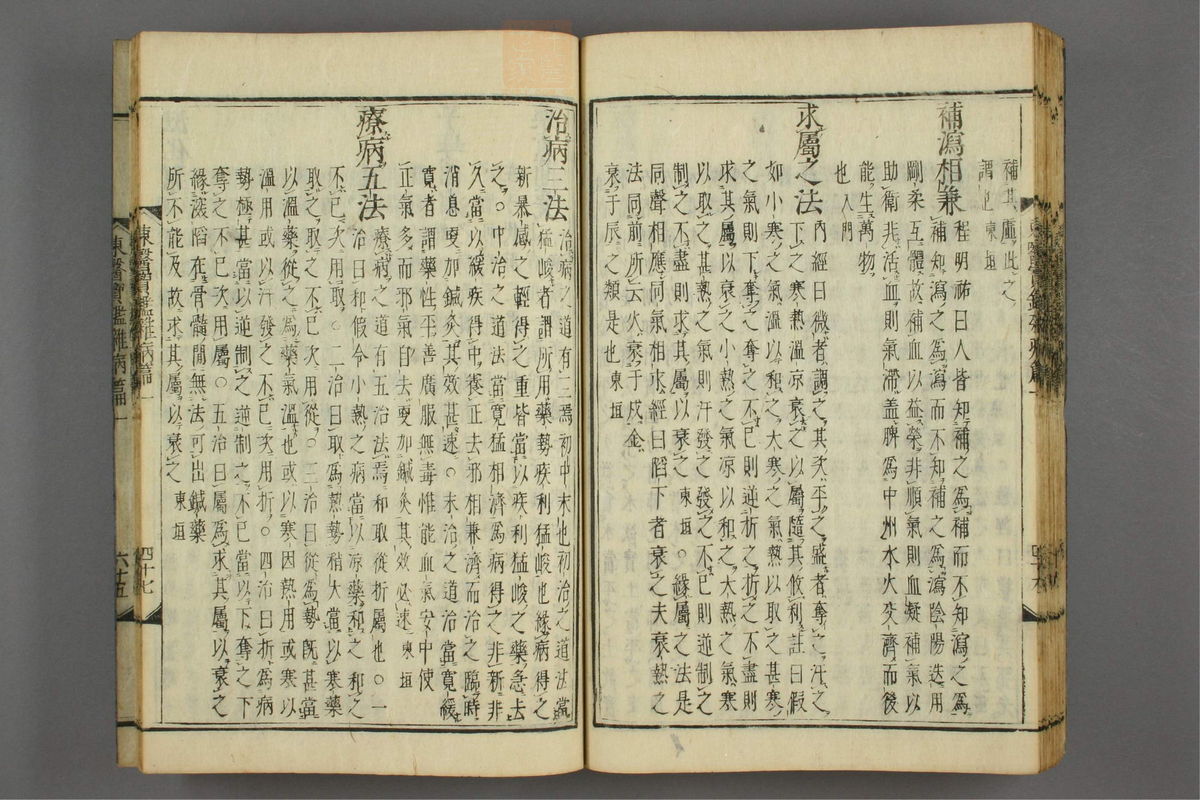 補其虛此之
謂也東垣
補瀉相兼
程明祐曰人皆知補之爲補而不知瀉之爲
補知瀉之爲瀉而不知補之爲瀉陰陽迭用
剛柔互體故補血以益榮非順氣則血凝補氣以
助衛非活血則氣滯盖脾爲中州水火交濟而後
能生萬物
也入門
求屬之法
內經曰微者調之其次平之盛者奪之汗之
下之寒熱溫凉衰之以屬隨其攸利註曰假
如小寒之氣溫以和之大寒之氣熱以取之甚寒
之氣則下奪之奪之不已則逆折之折之不盡則
求其屬以衰之小熱之氣凉以和之大熱之氣寒
以取之甚熱之氣則汗發之發之不已則逆制之
制之不盡則求其屬以衰之東垣○緣屬之法是
同聲相應同氣相求經曰陷下者衰之夫衰熱之
法同前所云火衰于戌金
衰于辰之類是也東垣
治病三法
治病之道有三焉初中末也初治之道法當
猛峻者謂所用藥勢疾利猛峻也緣病得之
新暴感之輕得之重皆當以疾利猛峻之藥急去
之中治之道法當寬猛相濟爲病得之非新非
久當以緩疾得中養正去邪相兼濟而治之臨時
消息更加鍼灸其效甚速○末治之道治當寬緩
寬者謂藥性平善廣服無毒惟能血氣安中使
正氣多而邪氣自去更加鍼灸其效必速東垣
療病五法
療病之道有五治法焉和取從折屬也○一
治曰和假令小熱之病當以凉藥和之和之
不已次用取○二治曰取爲熱勢稍大當以寒藥
取之取之不已次用從○三治曰從爲勢旣甚當
以溫藥從之爲藥氣溫也或以寒因熱用或寒以
溫用或以汗發之不已次用折○四治曰折爲病
勢極甚當以逆制之逆制之不已當以下奪之下
奪之不已次用屬○五治曰屬爲求其屬以衰之
緣深陷在骨髓間無法可出鍼藥
所不能及故求其屬以衰之東垣
東醫寶鑑雜病篇一
四十七
六十五